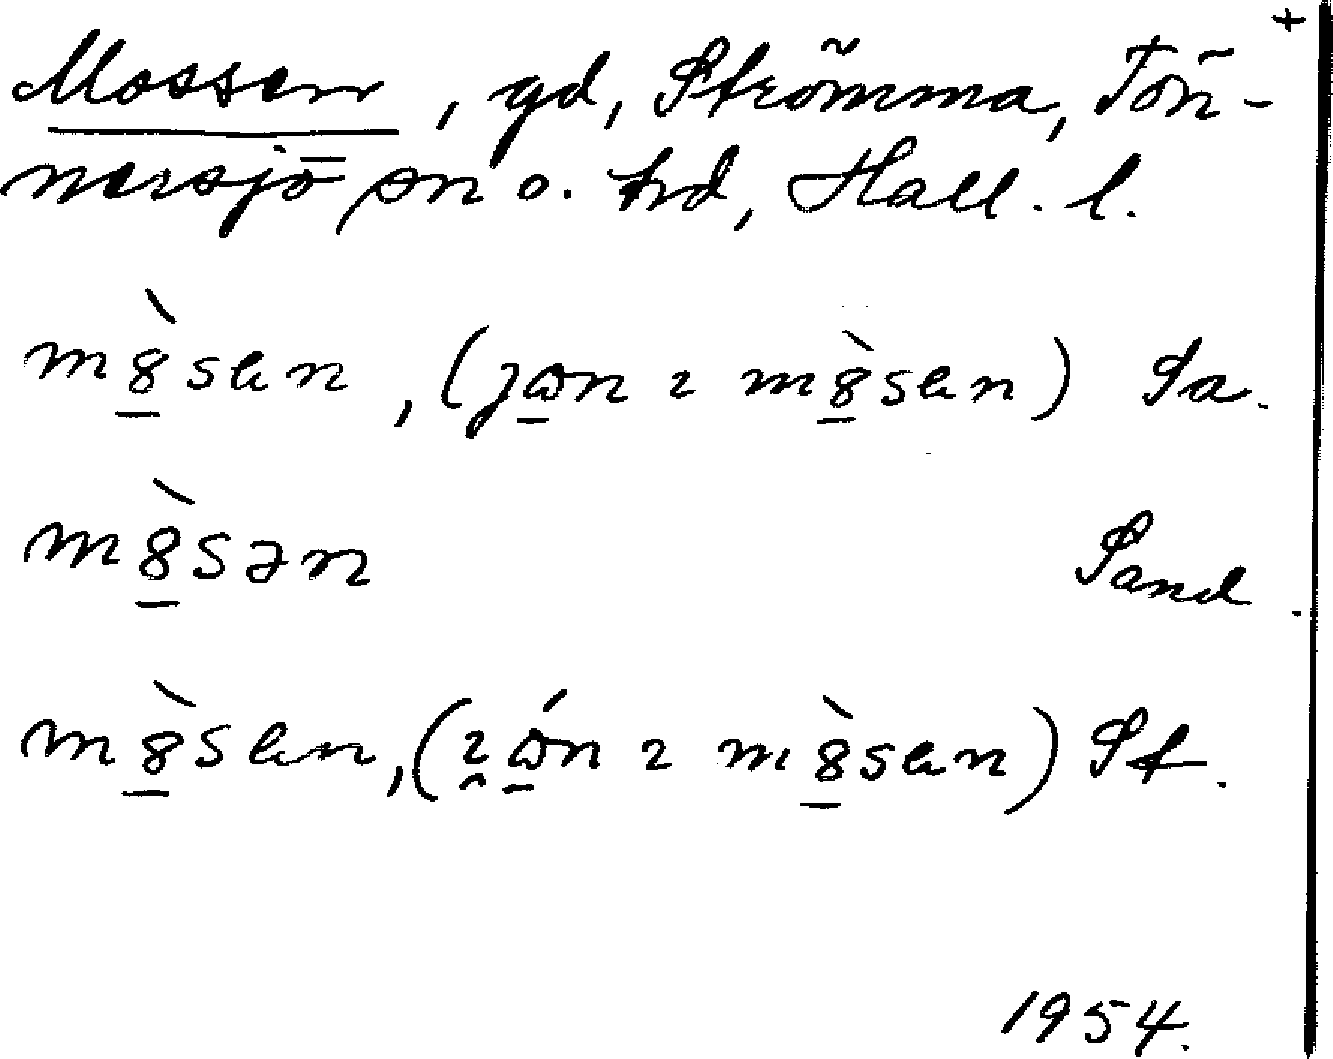 +
Mossen, gd, Strömma, Tön-
nersjö sn o. hd, Hall. l.
m8̲̀sen, (jɷ̲n ɩ m8̲̀sen) Sa.
m8̲̀sən Sand.
m8̲̀sen, (ɩ̯ɷ̲́n ɩ m8̲̀sen) St.
1954.